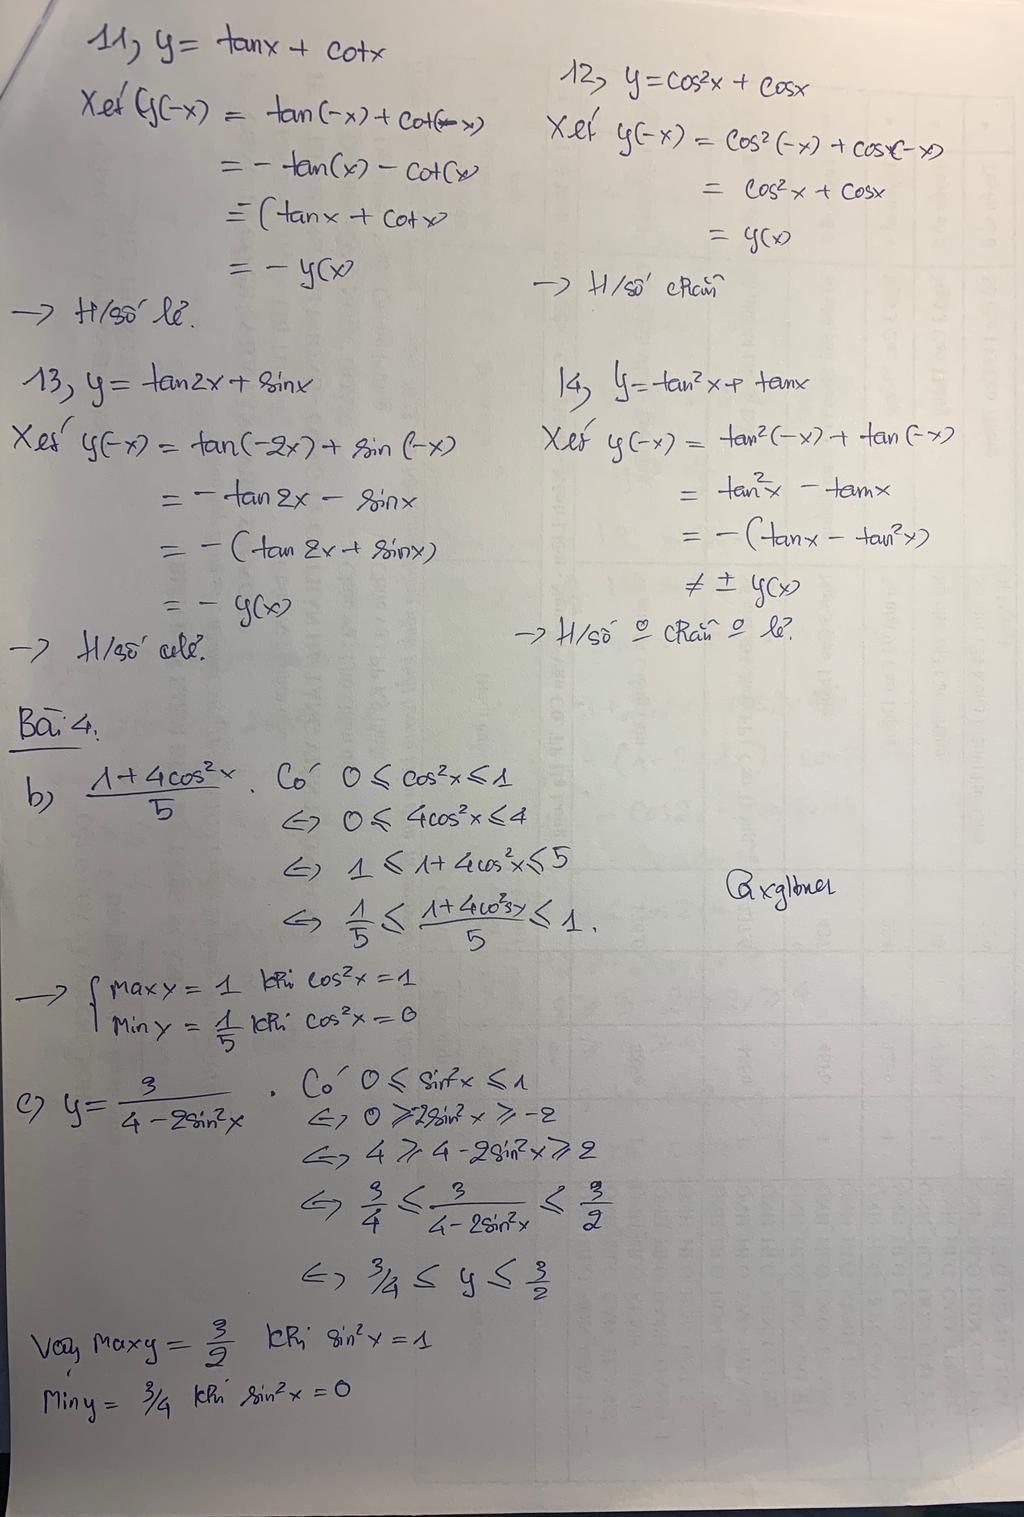 11, y = tanx + cotx
Xét y(-x) = tan(-x) + cot(-x)
= - tan(x) - cot(x)
= -(tanx + cotx)
= - y(x)
→ H/số lẻ.
12, y = cos²x + cosx
Xét y(-x) = cos²(-x) + cos(-x)
= cos²x + cosx
= y(x)
→ H/số chẵn
13, y = tan2x + sinx
Xét y(-x) = tan(-2x) + sin(-x)
= - tan2x - sinx
= -(tan2x + sinx)
= - y(x)
→ H/số lẻ.
14, y = tan²x + tanx
Xét y(-x) = tan²(-x) + tan(-x)
= tan²x - tanx
= -(tanx - tan²x)
≠ ± y(x)
→ H/số o chẵn o lẻ.
Bài 4.
b) (1+4cos²x)/5 . Có 0 ≤ cos²x ≤ 1
<=> 0 ≤ 4cos²x ≤ 4
<=> 1 ≤ 1+4cos²x ≤ 5
<=> 1/5 ≤ (1+4cos²x)/5 ≤ 1.
→ { Max y = 1 khi cos²x = 1
Min y = 1/5 khi cos²x = 0
c) y = 3/(4-2sin²x) . Có 0 ≤ sin²x ≤ 1
<=> 0 ≥ -2sin²x ≥ -2
<=> 4 ≥ 4-2sin²x ≥ 2
<=> 3/4 ≤ 3/(4-2sin²x) ≤ 3/2
<=> 3/4 ≤ y ≤ 3/2
Vậy Max y = 3/2 khi sin²x = 1
Min y = 3/4 khi sin²x = 0